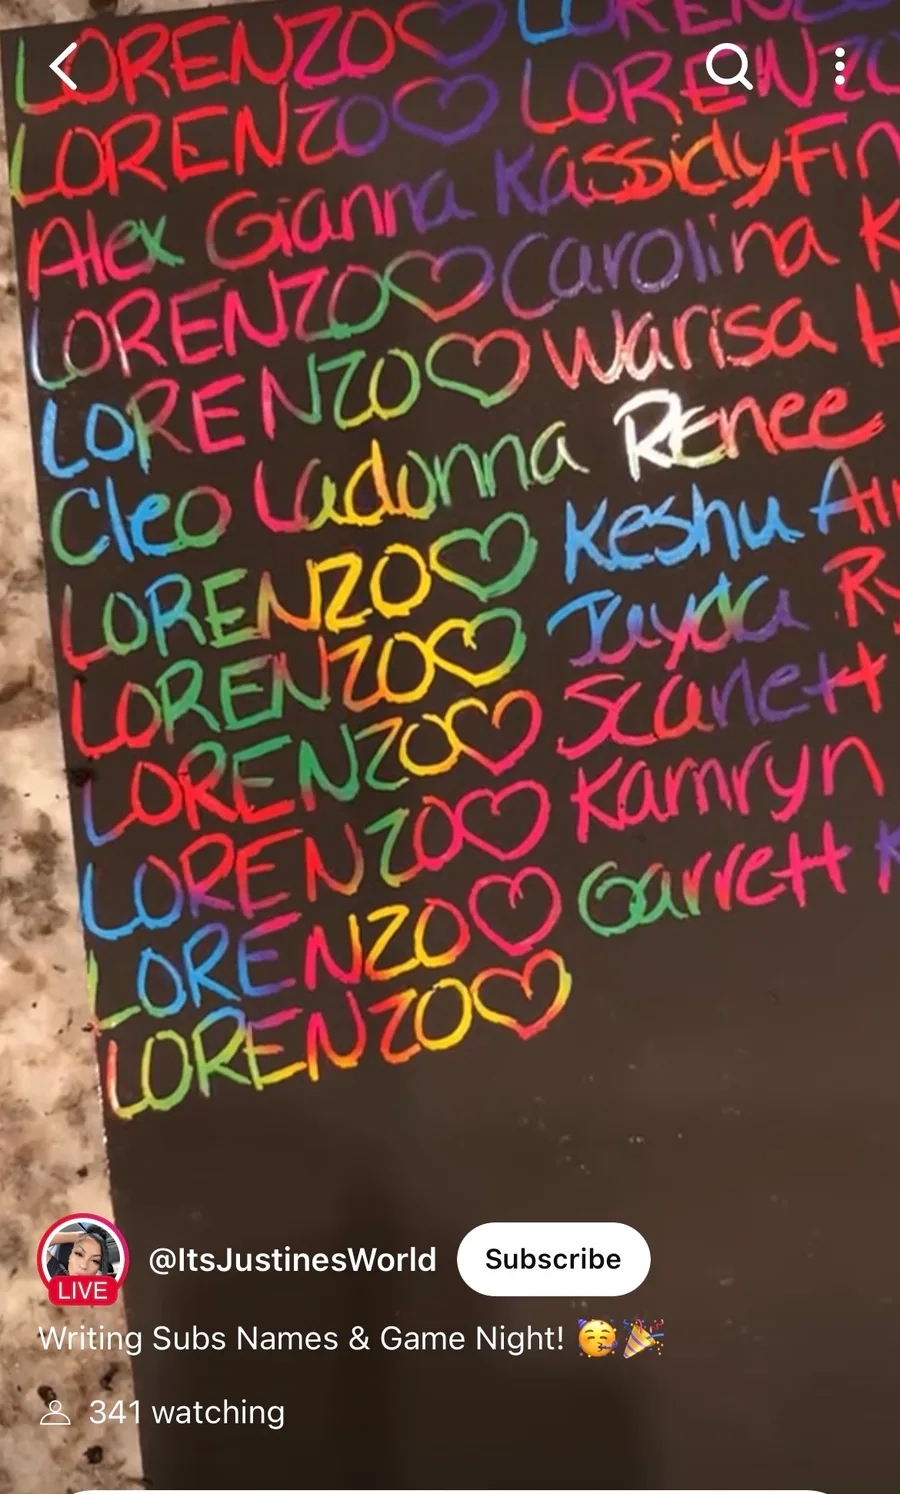 LORENZO♡ LORENZO
LORENZO♡ LORENZO
Alex Gianna Kassidy Fin
LORENZO♡ Carolina K
LORENZO♡ Warisa H
Cleo Ladonna Renee
LORENZO♡ Keshu
LORENZO♡ Jayda
LORENZO♡ Scarlett
LORENZO♡ Kamryn
LORENZO♡ Garrett K
LORENZO♡
LIVE
@ItsJustinesWorld
Subscribe
Writing Subs Names & Game Night! 🥳🎉
341 watching